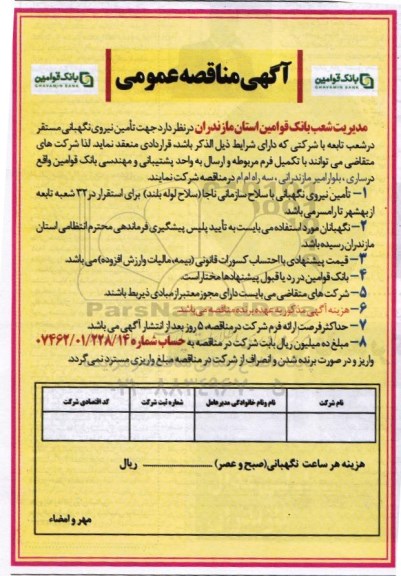 بانک قوامین
GHAVAMIN BANK
آگهی مناقصه عمومی
بانک قوامین
GHAVAMIN BANK
مدیریت شعب بانک قوامین استان مازندران در نظر دارد جهت تأمین نیروی نگهبانی مستقر
در شعب تابعه با شرکتی که دارای شرایط ذیل الذکر باشد، قراردادی منعقد نماید، لذا شرکت های
متقاضی می توانند با تکمیل فرم مربوطه و ارسال به واحد پشتیبانی و مهندسی بانک قوامین واقع
در ساری ، بلوار امیر مازندرانی ، سه راه ام ام در مناقصه شرکت نمایند.
۱- تأمین نیروی نگهبانی با سلاح سازمانی ناجا (سلاح لوله بلند) برای استقرار در ۳۲ شعبه تابعه
از بهشهر تا رامسر می باشد.
۲- نگهبانان مورد استفاده می بایست به تأیید پلیس پیشگیری فرماندهی محترم انتظامی استان
مازندران رسیده باشد.
۳- قیمت پیشنهادی با احتساب کسورات قانونی (بیمه، مالیات وارزش افزوده) می باشد.
۴- بانک قوامین در رد یا قبول پیشنهادها مختار است.
۵- شرکت های متقاضی می بایست دارای مجوز معتبر از مبادی ذیربط باشند.
۶- هزینه آگهی مذکور به عهده برنده مناقصه می باشد.
۷- حداکثر فرصت ارائه فرم شرکت در مناقصه، ۵ روز بعد از انتشار آگهی می باشد.
۸- مبلغ ده میلیون ریال بابت شرکت در مناقصه به حساب شماره ۰۷۴۶۲/۰۱/۲۲۸/۱۴
واریز و در صورت برنده شدن و انصراف از شرکت در مناقصه مبلغ واریزی مسترد نمی گردد.
نام شرکت
نام ونام خانوادگی مدیرعامل
شماره ثبت شرکت
کد اقتصادی شرکت
هزینه هر ساعت نگهبانی(صبح و عصر) ........................ ریال
مهر و امضاء